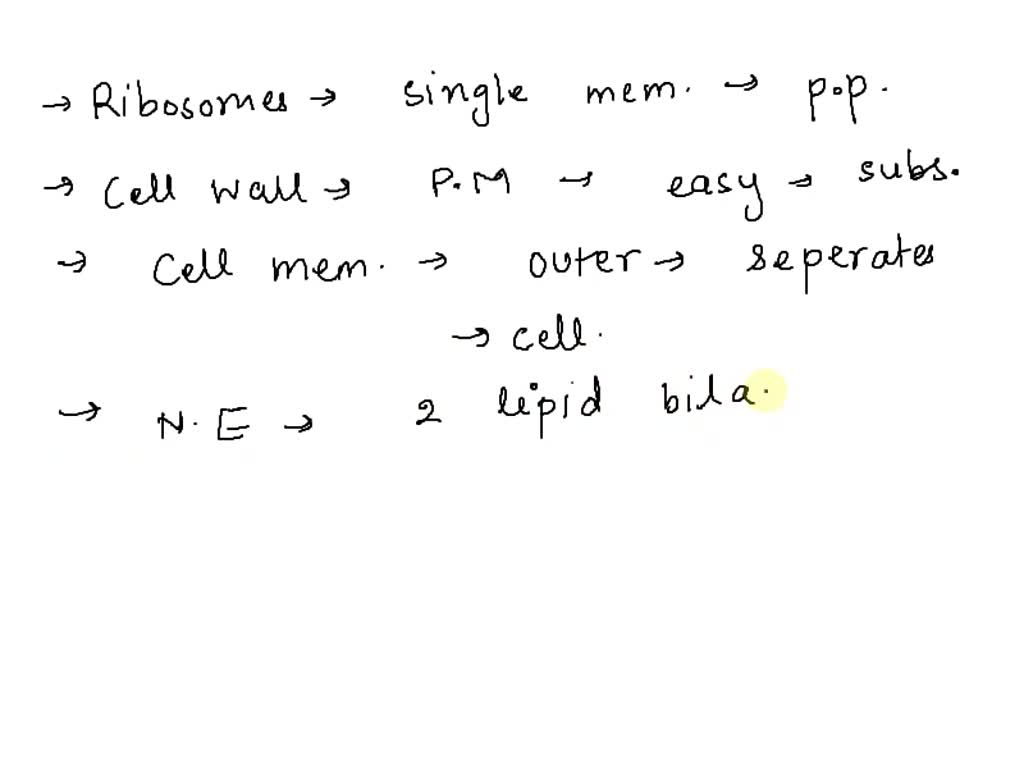 → Ribosomes → single mem. → p.p.
→ Cell wall → P.M → easy → subs.
→ Cell mem. → outer → seperates
→ cell.
→ N.E → 2 lipid bila.